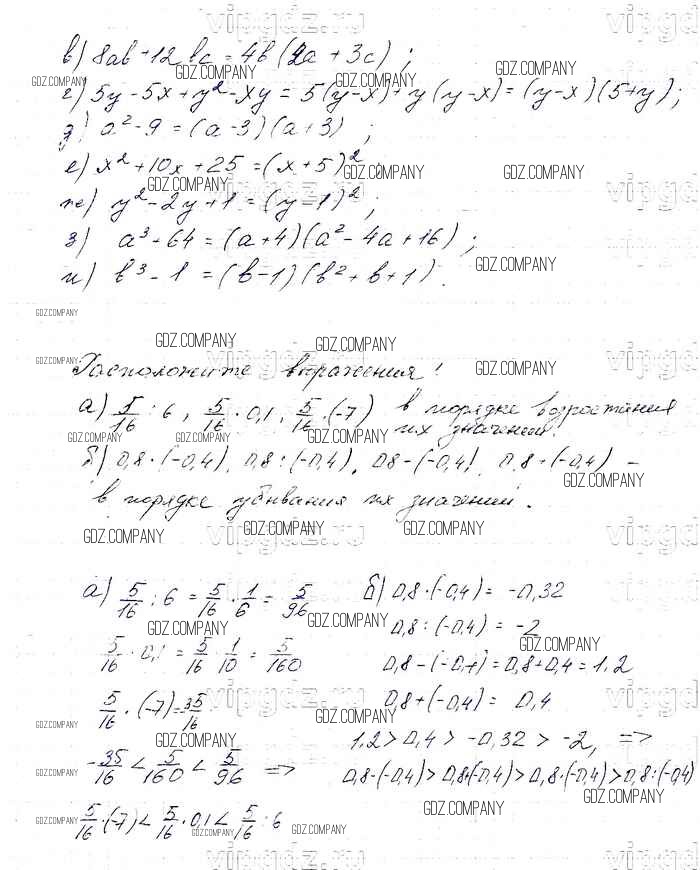 в) 8ab + 12bc = 4b (2a + 3c) ;
г) 5y - 5x + y² - xy = 5 (y - x) + y (y - x) = (y - x) (5 + y) ;
д) a² - 9 = (a - 3) (a + 3) ;
е) x² + 10x + 25 = (x + 5)² ;
ж) y² - 2y + 1 = (y - 1)² ;
з) a³ + 64 = (a + 4) (a² - 4a + 16) ;
и) b³ - 1 = (b - 1) (b² + b + 1) .
Расположите выражения:
а) 5/16 : 6 , 5/16 · 0,1 , 5/16 · (-7) в порядке возрастания
их значений.
б) 0,8 · (-0,4) , 0,8 : (-0,4) , 0,8 - (-0,4) , 0,8 + (-0,4) -
в порядке убывания их значений .
а) 5/16 : 6 = 5/16 · 1/6 = 5/96
5/16 · 0,1 = 5/16 · 1/10 = 5/160
5/16 · (-7) = - 35/16
- 35/16 < 5/160 < 5/96 =>
5/16 · (-7) < 5/16 · 0,1 < 5/16 : 6
б) 0,8 · (-0,4) = -0,32
0,8 : (-0,4) = -2
0,8 - (-0,4) = 0,8 + 0,4 = 1,2
0,8 + (-0,4) = 0,4
1,2 > 0,4 > -0,32 > -2, =>
0,8 - (-0,4) > 0,8 + (-0,4) > 0,8 · (-0,4) > 0,8 : (-0,4)
GDZ.COMPANY
vipgdz.ru